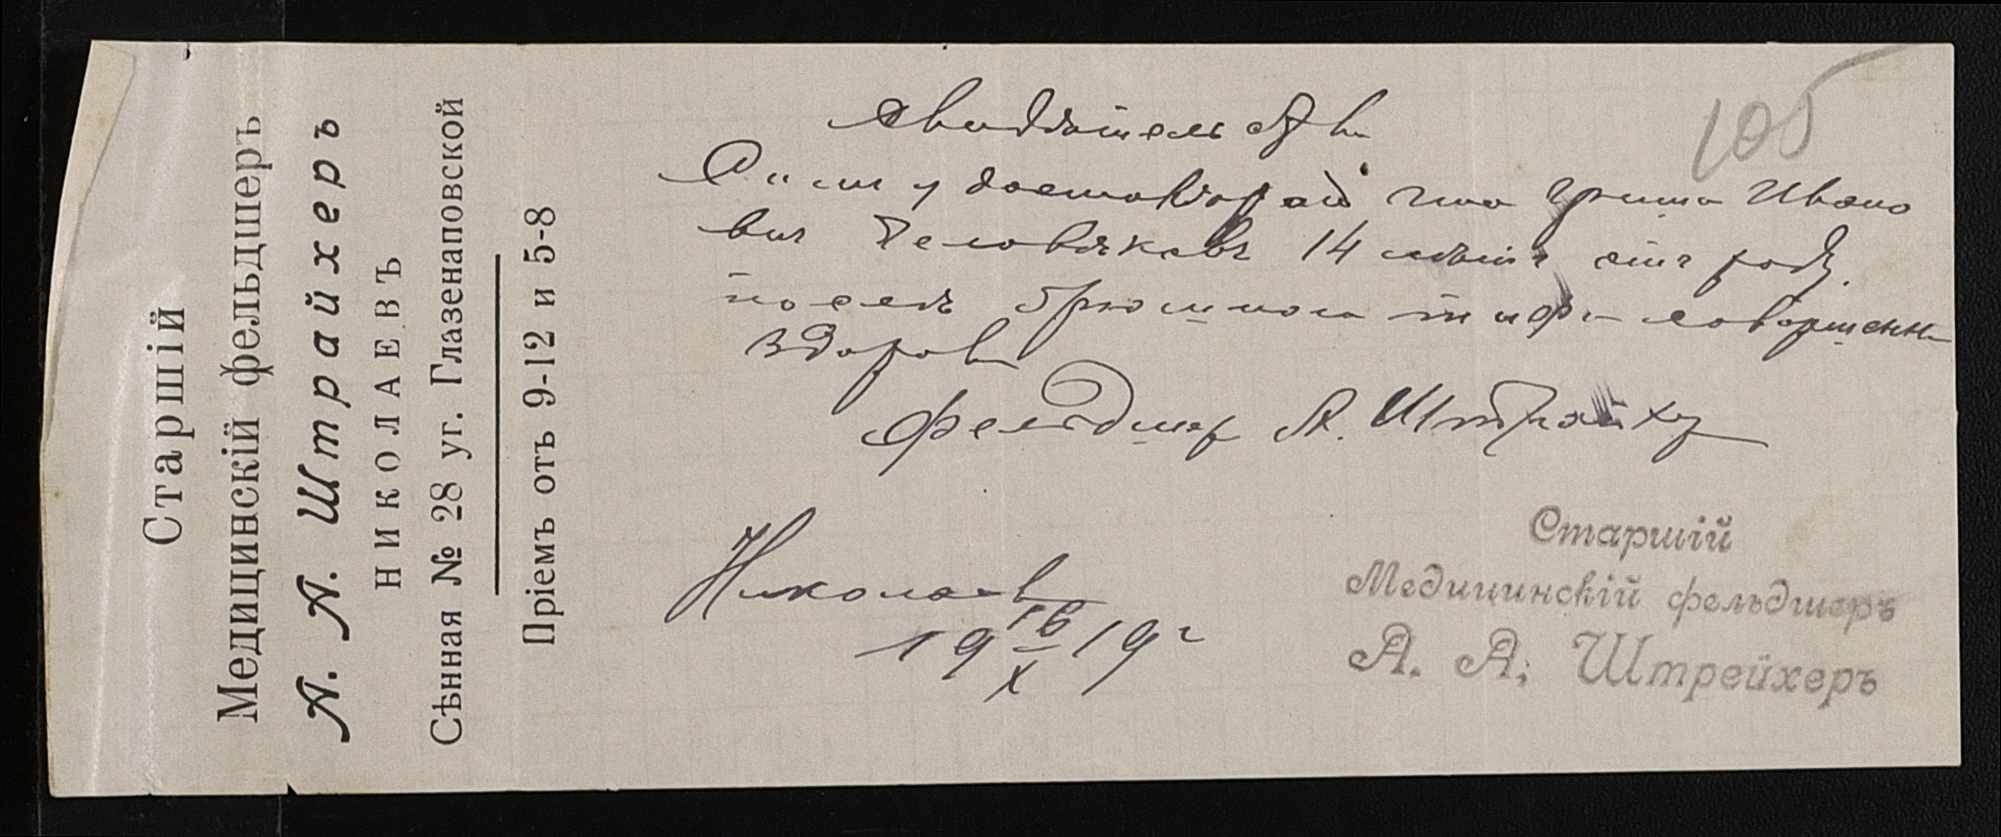 Старшій
Медицинскій фельдшеръ
А. А. Штрайхеръ
НИКОЛАЕВЪ
Сѣнная № 28 уг. Глазенаповской
Пріемъ отъ 9-12 и 5-8
105
Свидѣтельство
Симъ удостовѣряю что Гриша Ивано
вичъ Человѣковъ 14 лѣтъ отъ роду
послѣ брюшного тифа совершенно
здоровъ
Фельдшер А. Штрайхер
Николаев
19 16/X 19 г
Старшій
Медицинскій фельдшеръ
А. А. Штрейхеръ